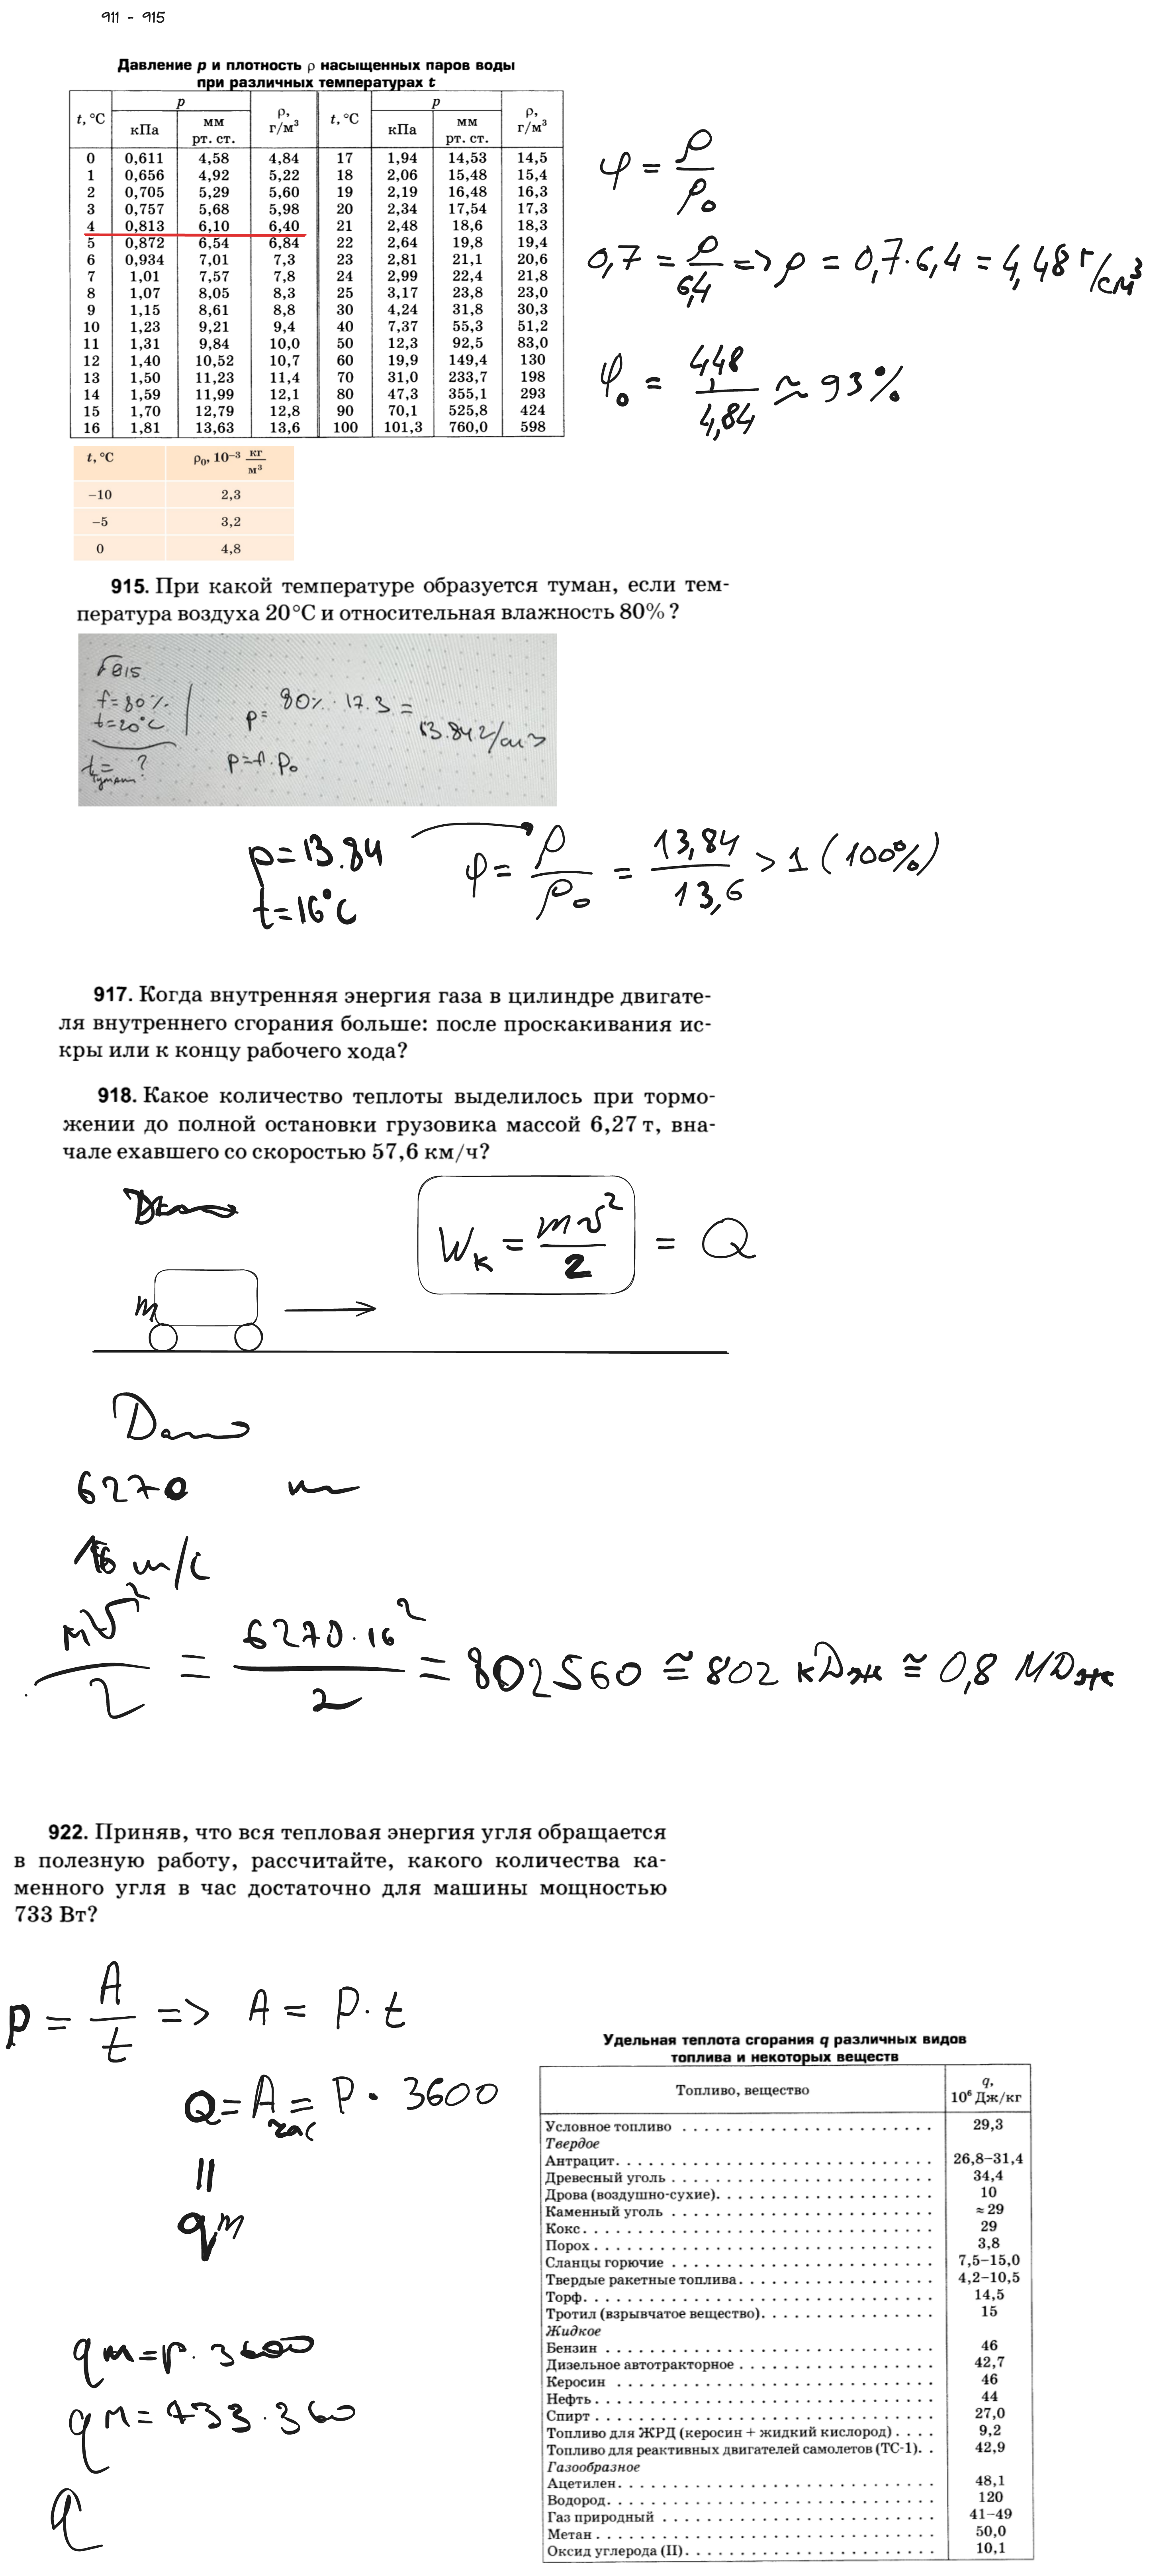 911 - 915
Давление p и плотность ρ насыщенных паров воды
при различных температурах t
t, °C p ρ, г/м³ t, °C p ρ, г/м³
кПа мм рт. ст. кПа мм рт. ст.
0 0,611 4,58 4,84 17 1,94 14,53 14,5
1 0,656 4,92 5,22 18 2,06 15,48 15,4
2 0,705 5,29 5,60 19 2,19 16,48 16,3
3 0,757 5,68 5,98 20 2,34 17,54 17,3
4 0,813 6,10 6,40 21 2,48 18,6 18,3
5 0,872 6,54 6,84 22 2,64 19,8 19,4
6 0,934 7,01 7,3 23 2,81 21,1 20,6
7 1,01 7,57 7,8 24 2,99 22,4 21,8
8 1,07 8,05 8,3 25 3,17 23,8 23,0
9 1,15 8,61 8,8 30 4,24 31,8 30,3
10 1,23 9,21 9,4 40 7,37 55,3 51,2
11 1,31 9,84 10,0 50 12,3 92,5 83,0
12 1,40 10,52 10,7 60 19,9 149,4 130
13 1,50 11,23 11,4 70 31,0 233,7 198
14 1,59 11,99 12,1 80 47,3 355,1 293
15 1,70 12,79 12,8 90 70,1 525,8 424
16 1,81 13,63 13,6 100 101,3 760,0 598
φ = ρ/ρ₀
0,7 = ρ/6,4 => ρ = 0,7·6,4 = 4,48 г/см³
φ₀ = 4,48/4,84 ≈ 93%
t, °C ρ₀, 10⁻³ кг/м³
−10 2,3
−5 3,2
0 4,8
915. При какой температуре образуется туман, если тем-
пература воздуха 20°С и относительная влажность 80%?
f=80%
t=20°C
t туман = ?
p= 80% · 17.3 =
13.84 г/см3
p=f·p₀
p=13.84
t=16°C
φ = ρ/ρ₀ = 13,84/13,6 > 1 (100%)
917. Когда внутренняя энергия газа в цилиндре двигате-
ля внутреннего сгорания больше: после проскакивания ис-
кры или к концу рабочего хода?
918. Какое количество теплоты выделилось при тормо-
жении до полной остановки грузовика массой 6,27 т, вна-
чале ехавшего со скоростью 57,6 км/ч?
Wк = mv²/2 = Q
m
Дано
6270
16 м/с
mv²/2 = 6270·16²/2 = 802560 ≅ 802 кДж ≅ 0,8 МДж
922. Приняв, что вся тепловая энергия угля обращается
в полезную работу, рассчитайте, какого количества ка-
менного угля в час достаточно для машины мощностью
733 Вт?
P = A/t => A = P·t
Q = A час = P · 3600
||
qm
qm=p·3600
qm=733·360
q
Удельная теплота сгорания q различных видов
топлива и некоторых веществ
Топливо, вещество q, 10⁶ Дж/кг
Условное топливо 29,3
Твердое
Антрацит 26,8–31,4
Древесный уголь 34,4
Дрова (воздушно-сухие) 10
Каменный уголь ≈ 29
Кокс 29
Порох 3,8
Сланцы горючие 7,5–15,0
Твердые ракетные топлива 4,2–10,5
Торф 14,5
Тротил (взрывчатое вещество) 15
Жидкое
Бензин 46
Дизельное автотракторное 42,7
Керосин 46
Нефть 44
Спирт 27,0
Топливо для ЖРД (керосин + жидкий кислород) 9,2
Топливо для реактивных двигателей самолетов (ТС-1) 42,9
Газообразное
Ацетилен 48,1
Водород 120
Газ природный 41–49
Метан 50,0
Оксид углерода (II) 10,1